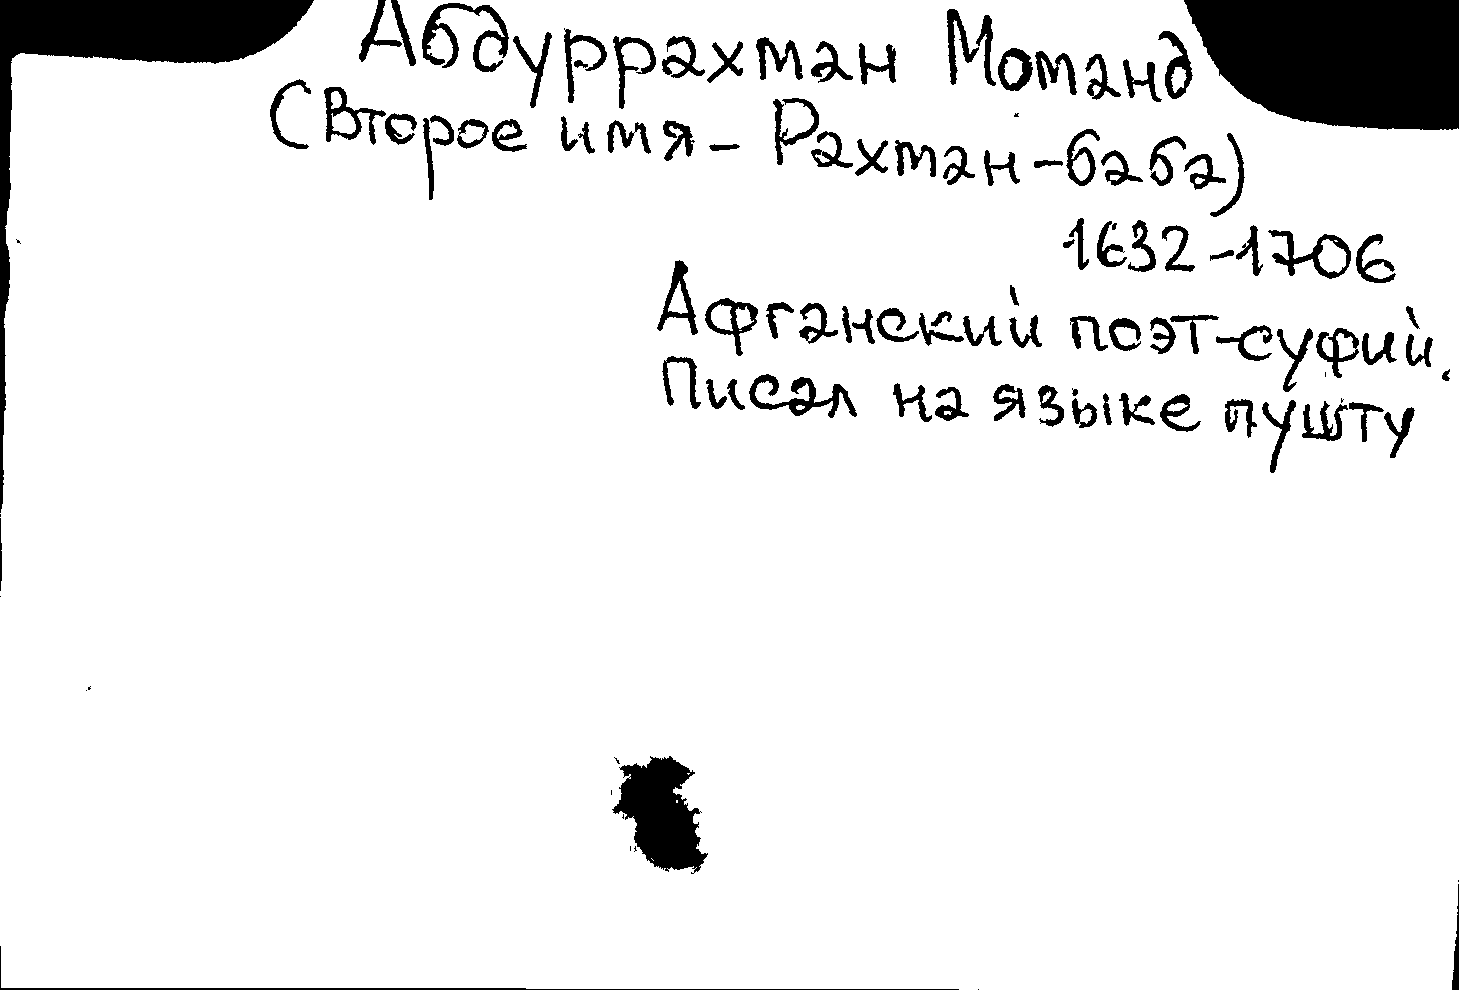 Абдуррахман Моманд
(Второе имя - Рахман-баба)
1632-1706
Афганский поэт-суфий.
Писал на языке пушту